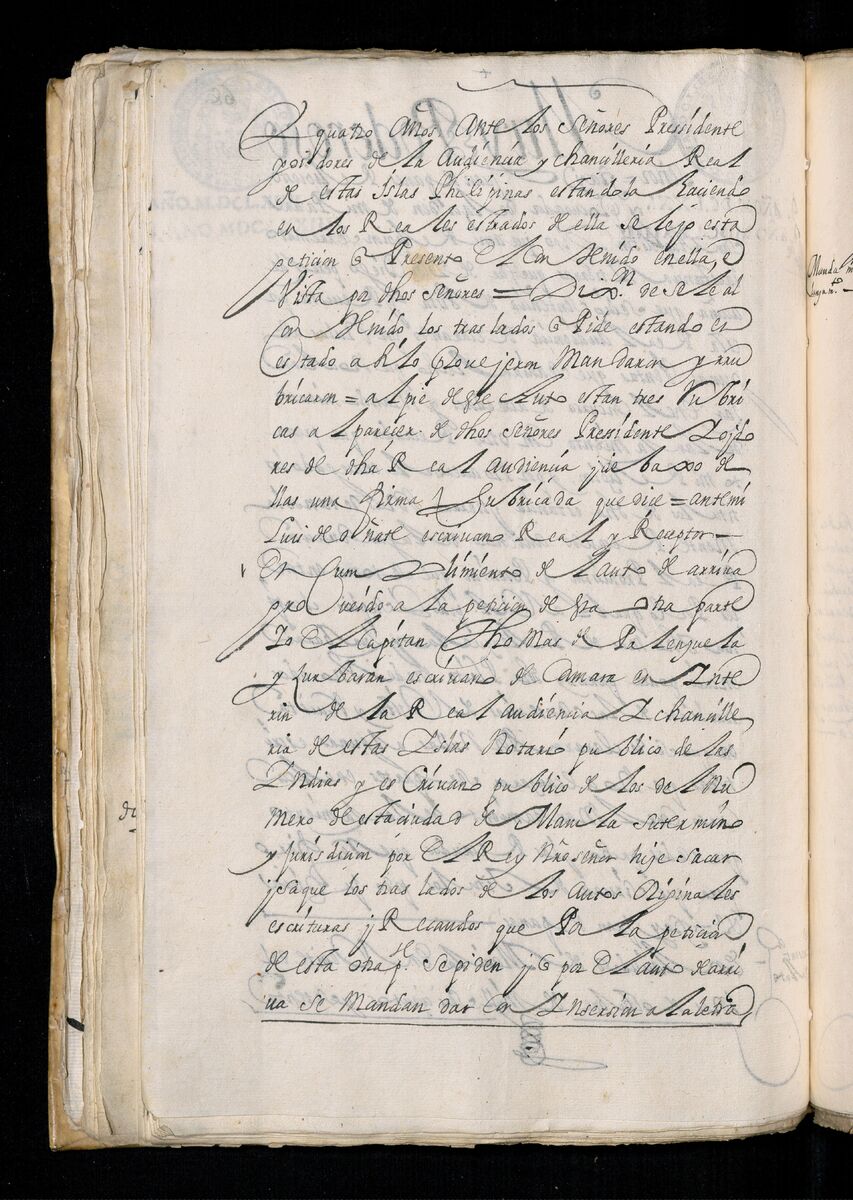 y quatro años ante los señores Pressidente
y oidores de la Audiencia y chancilleria Real
de estas islas Philipinas estandola haciendo
en los Reales estrados de ella se leyo esta
peticion q Presento el con thenido en ella, e
Vista por dhos señores = Dixon. de sele al
con thenido los traslados q Pide estando en
estado a si lo Proueyeron Mandaron y rru
bricaron = al pie deste Auto estan tres Rubri
cas al parecer de dhos señores Pressidente Y oydo
res de dha Real audiencia y de baxo de
llas una firma Rubricada que dice = antemi
Luis de oñate escriuano Real y Receptor =
En Cumplimiento del auto de arriua
proueido a la peticion desta otra parte
Yo el Capitan Thomas de Palenzuela
y Zurbaran escriuano de Camara en Inte
rin de la Real audiencia Y chancille
ria de estas Yslas Notario publico de las
Yndias y es Criuano publico de los del Nu
mero de esta ciudad de Manila su termino
y jurisdicion por el Rey Nro señor hize Sacar
y saque los traslados de los Autos Originales
escrituras y Recaudos que Por la peticion
de esta otra pte. se piden y q por el auto de arri
ua se Mandan dar con Insersion a la letra